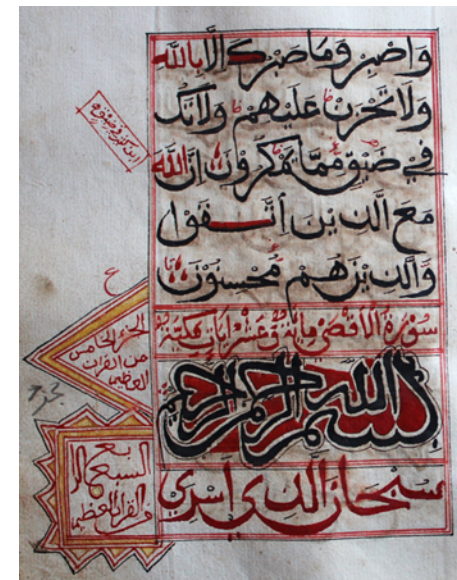 وَاصْبِرْ وَمَا صَبْرُكَ إِلَّا بِاللَّهِ
وَلَا تَحْزَنْ عَلَيْهِمْ وَلَا تَكُ
فِي ضَيْقٍ مِمَّا يَمْكُرُونَ إِنَّ اللَّهَ
مَعَ الَّذِينَ اتَّقَوْا
وَالَّذِينَ هُمْ مُحْسِنُونَ
سورة الأقصى مائة عشر آيات مكية
بسم الله الرحمن الرحيم
سُبْحَانَ الَّذِي أَسْرَى
الجزء الخامس
من القرآن
العظيم
السبع
القرآن العظيم